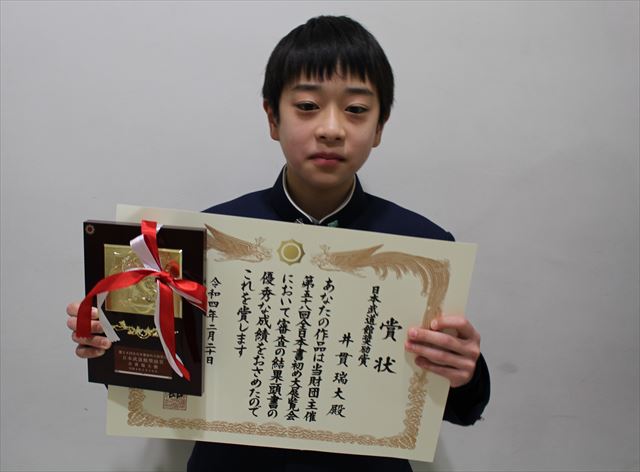 賞状
日本武道館奨励賞
井貫瑞大殿
あなたの作品は当財団主催
第五十八回全日本書初め大展覧会
において審査の結果頭書の
優秀な成績をおさめたので
これを賞します
令和四年二月二十日